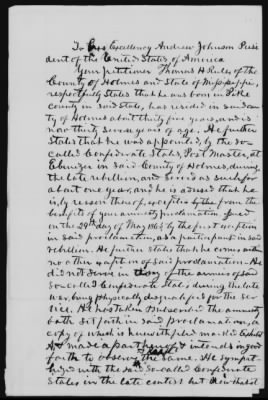 To His Excellency Andrew Johnson Presi
dent of the United States of America
Your petitioner Thomas H of the
County of Holmes and State of Mississippi,
respectfully States that he was born in
county in said State, has resided in said coun
ty of Holmes about thirty five years, and is
now thirty seven years of age. He further
States that he was appointed by the so
called Confederate States, Post Master, at
Ebenezer in said County of Holmes, during
the late rebellion, and served as such for
about one year, and he is advised that he
is, by reason thereof, excepted from the
benefits of your amnesty proclamation issued
on the 29th day of May 1865 by the first exception
in said proclamation, as a participant in said
rebellion. He further States that he comes within
no other exception of said proclamation. He
did not serve in any of the armies of said
so-called Confederate States during the late
war, being physically disqualified for the ser
vice. He has taken & subscribed the amnesty
oath set forth in said proclamation, a
copy of which is herewith filed marked Exhibit
A & made a part hereof & intends in good
faith to observe the same. He sympat
hized with the said so-called Confederate
States in the late contest but